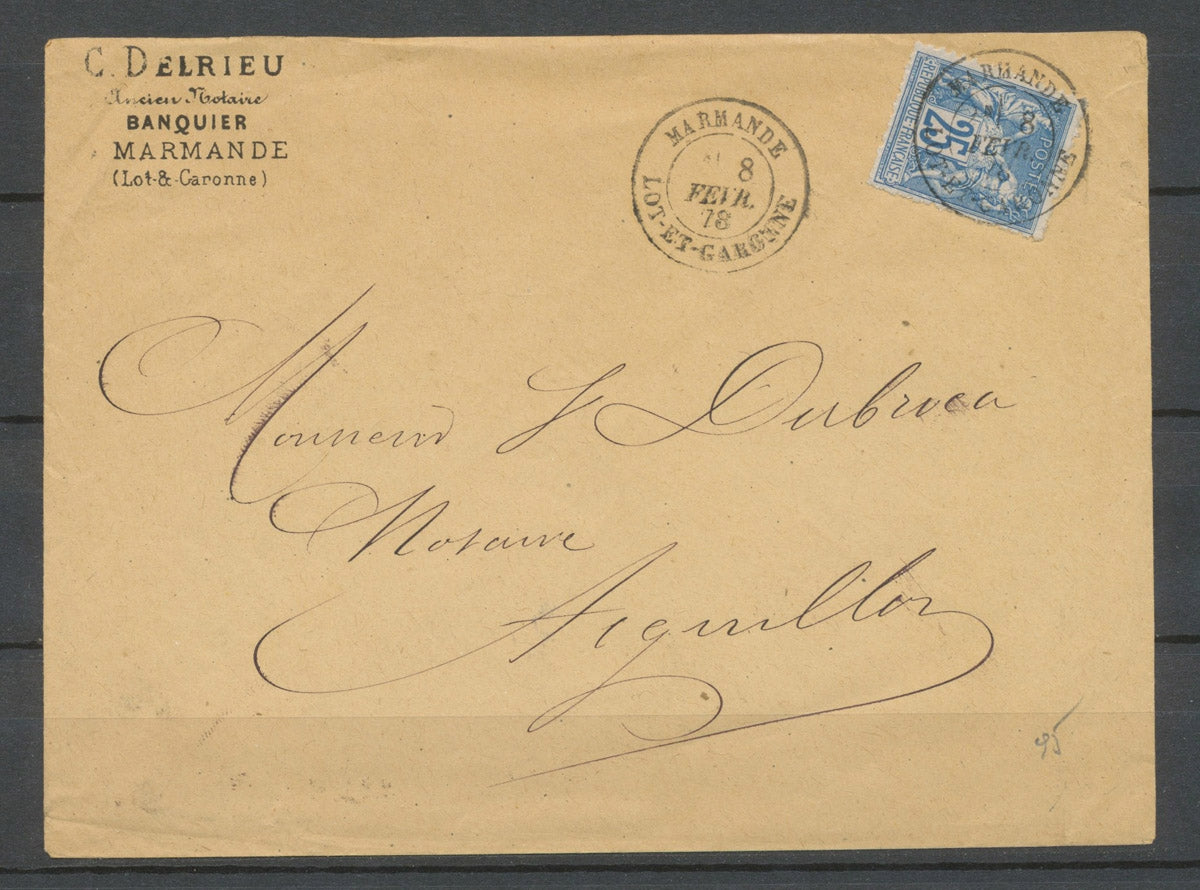 C. DELRIEU
Ancien Notaire
BANQUIER
MARMANDE
(Lot-&-Garonne)
MARMANDE
8
FEVR.
78
LOT-ET-GARONNE
MARMANDE
8
FEVR.
REPUBLIQUE FRANÇAISE
25
POSTES
Monsieur Dubroca
Notaire
Aiguillon
95